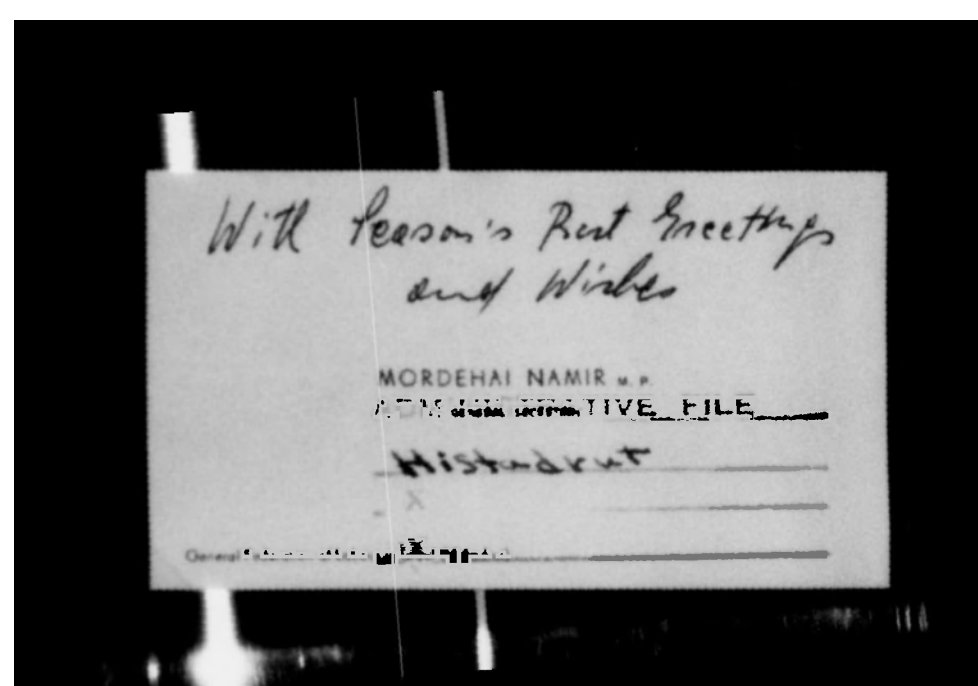 With Season's Best Greetings
and Wishes
MORDEHAI NAMIR M. P.
GENERAL SECRETARY
FILE
Histadrut
X
General